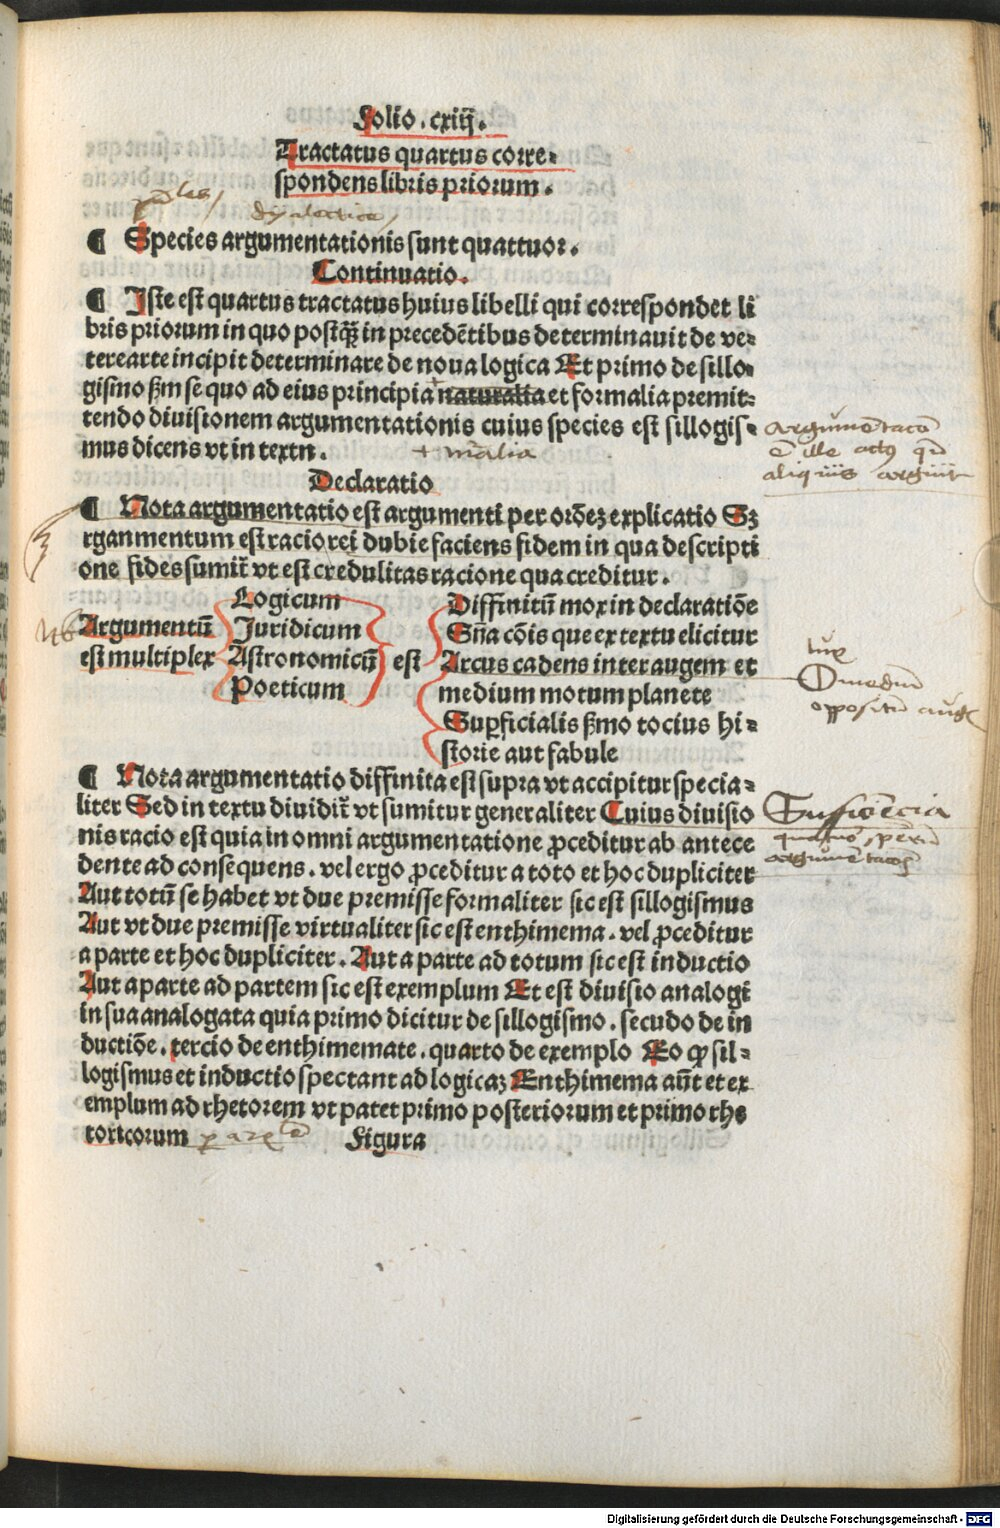 Folio. cxiij.
Tractatus quartus corre-
spondens libris priorum.
dyalectice
¶ Species argumentationis sunt quattuor.
Continuatio.
¶ Iste est quartus tractatus huius libelli qui correspondet li
bris priorum in quo postq̃ in precedētibus determinauit de ve-
tere arte incipit determinare de noua logica Et primo de sillo-
gismo ẞm se quo ad eius principia naturalia et formalia premit-
tendo diuisionem argumentationis cuius species est sillogis-
mus dicens vt in textn.
+ mālia
argumētacō
ē ille actꝰ quo
aliquis arguit
Declaratio
¶ Nota argumentatio est argumenti per orōeꝫ explicatio Sꝫ
rganmentum est racio rei dubie faciens fidem in qua descripti
one fides sumit̃ vt est credulitas racione qua creditur.
Argumentū
est multiplex
Logicum
Juridicum
Astronomicū
Poeticum
est
Diffinitū mox in declaratiōe
Sn̄a cōis que ex textu elicitur
Arcus cadens inter augem et
medium motum planete
Suꝑficialis ẞmo tocius hi-
storie aut fabule
oppositū augꝭ
¶ Nota argumentatio diffinita est supra vt accipitur specia-
liter Sed in textu diuidit̃ vt sumitur generaliter Cuius diuisio
nis racio est quia in omni argumentatione ꝓceditur ab antece
dente ad consequens. vel ergo ꝓceditur a toto et hoc dupliciter
Aut totū se habet vt due premisse formaliter sic est sillogismus
Aut vt due premisse virtualiter sic est enthimema. vel ꝓceditur
a parte et hoc dupliciter. Aut a parte ad totum sic est inductio
Aut a parte ad partem sic est exemplum Et est diuisio analogi
in sua analogata quia primo dicitur de sillogismo. secudo de in
ductiōe. tercio de enthimemate. quarto de exemplo Eo ꝙ sil-
logismus et inductio spectant ad logicaꝫ Enthimema aūt et ex
emplum ad rhetorem vt patet primo posteriorum et primo rhe
toricorum
Sufficiēcia
argumētacoꝝ
Figura
Digitalisierung gefördert durch die Deutsche Forschungsgemeinschaft - DFG